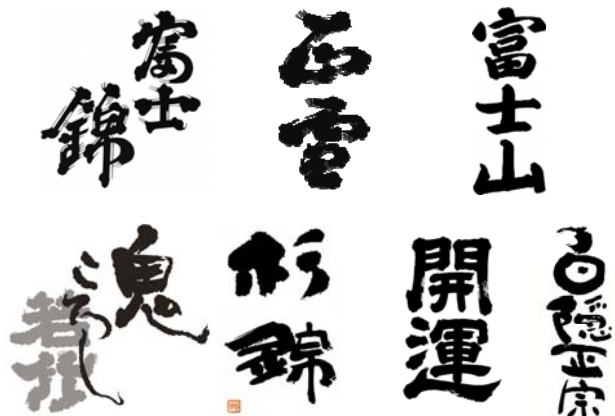 富士錦
正雪
富士山
魂ころし
若竹
杉錦
開運
白隠正宗